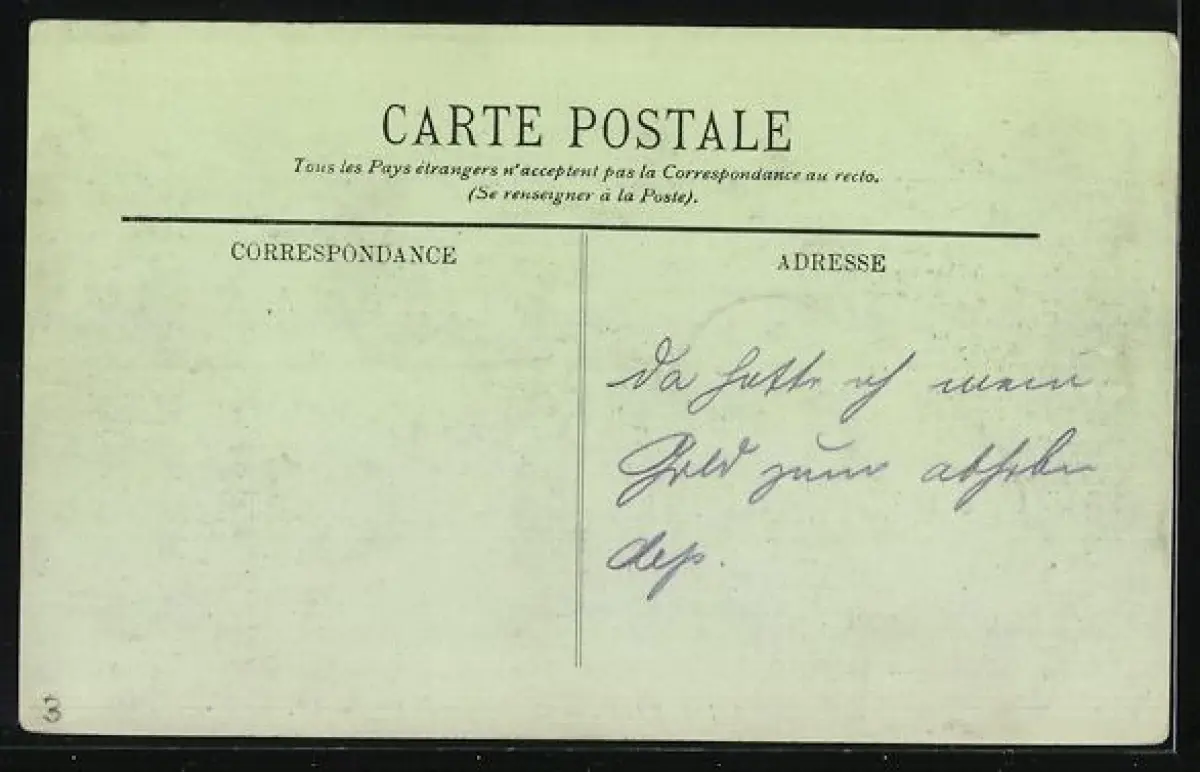 CARTE POSTALE
Tous les Pays étrangers n'acceptent pas la Correspondance au recto.
(Se renseigner à la Poste).
CORRESPONDANCE
ADRESSE
Da hatte ich mein
Geld zum abheben
dep.
3